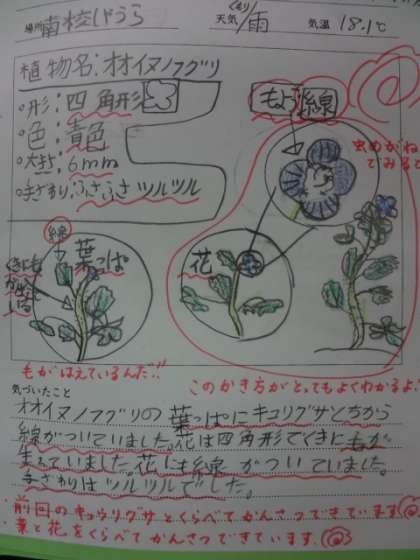 場所 南校しゃうら 天気 くもり/雨 気温 18.1℃
植物名:オオイヌノフグリ
○形:四角形
○色:青色
○大きさ:6mm
○手ざわり:ふさふさツルツル
もよう 線
虫めがね
でみると
線
葉っぱ
花
もがはえているんだ!!
このかき方がとってもよくわかるよ!
気づいたこと
オオイヌノフグリの葉っぱにキュリグサとちがう
線がついていました。花は四角形でくきにもが
生えていました。花には線がついていました。
手ざわりはツルツルでした。
・前回のキュウリグサとくらべてかんさつできています
・葉と花をくらべてかんさつできています。